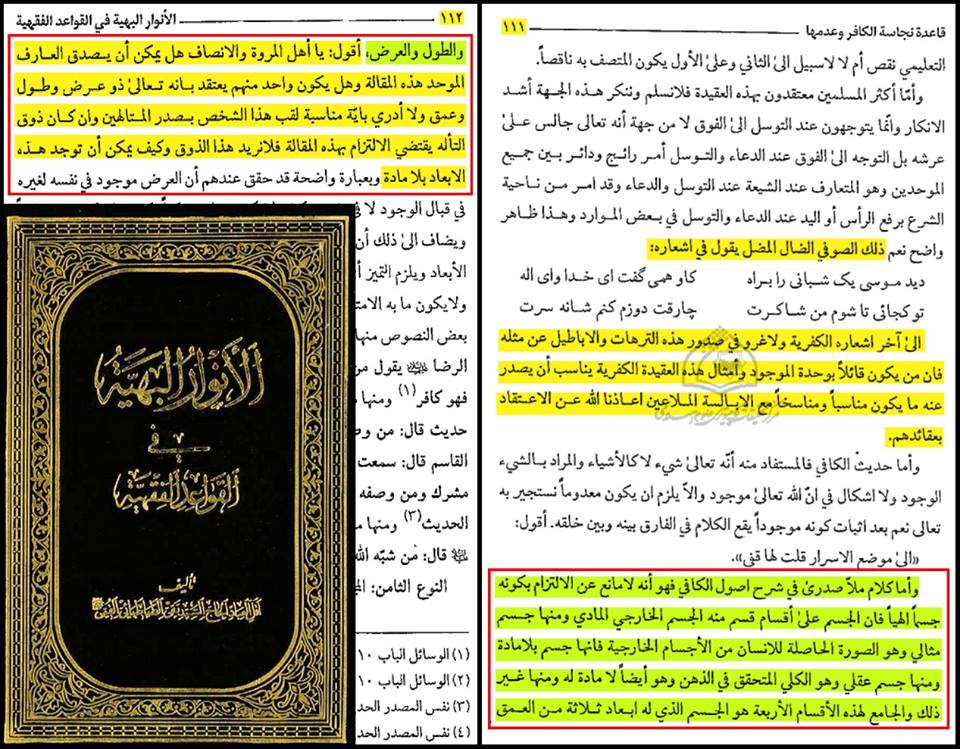 قاعدة نجاسة الكافر وعدمها ١١١
التعليمي نقص أم لا لاسبيل الىٰ الثاني وعلىٰ الأول يكون المتصف به ناقصاً.
وأمّا أكثر المسلمين معتقدون بهذه العقيدة فلانسلم وننكر هذه الجهة أشد
الانكار وانّما يتوجهون عند التوسل الىٰ الفوق لا من جهة أنه تعالىٰ جالس علىٰ
عرشه بل التوجه الىٰ الفوق عند الدعاء والتوسل أمر رائج ودائر بين جميع
الموحدين وهو المتعارف عند الشيعة عند التوسل والدعاء وقد امر من ناحية
الشرع برفع الرأس أو اليد عند الدعاء والتوسل في بعض الموارد وهذا ظاهر
واضح نعم ذلك الصوفي الضال المضل يقول في اشعاره:
ديد موسى يک شبانى را براه کاو همى گفت اى خدا واى اله
تو کجائى تا شوم من شاکرت چارقت دوزم کنم شانه سرت
الىٰ آخر اشعاره الكفرية ولاغرو في صدور هذه الترهات والاباطيل عن مثله
فان من يكون قائلاً بوحدة الموجود وأمثال هذه العقيدة الكفرية يناسب أن يصدر
عنه ما يكون مناسباً ومناسخاً مع الابالسة الملاعين اعاذنا الله عن الاعتقاد
بعقائدهم.
وأما حديث الكافي فالمستفاد منه أنّه تعالىٰ شيء لا كالأشياء والمراد بالشيء
الوجود ولا اشكال في انّ الله تعالىٰ موجود والاّ يلزم ان يكون معدوماً نستجير به
تعالىٰ نعم بعد اثبات كونه موجوداً يقع الكلام في الفارق بينه وبين خلقه. أقول:
«الىٰ موضع الاسرار قلت لها قفي».
وأما كلام ملاّ صدرىٰ في شرح اصول الكافي فهو أنه لامانع عن الالتزام بكونه
جسماً الهياً فان الجسم علىٰ أقسام قسم منه الجسم الخارجي المادي ومنها جسم
مثالي وهو الصورة الحاصلة للانسان من الأجسام الخارجية فانها جسم بلامادة
ومنها جسم عقلي وهو الكلي المتحقق في الذهن وهو أيضاً لا مادة له ومنها غير
ذلك والجامع لهذه الأقسام الأربعة هو الجسم الذي له ابعاد ثلاثة من العمق
١١٢ الأنوار البهية في القواعد الفقهية
والطول والعرض، أقول: يا أهل المروة والانصاف هل يمكن أن يصدق العارف
الموحد هذه المقالة وهل يكون واحد منهم يعتقد بانه تعالىٰ ذو عرض وطول
وعمق ولا أدري بايّة مناسبة لقب هذا الشخص بصدر المتالهين وان كان ذوق
التأله يقتضي الالتزام بهذه المقالة فلانريد هذا الذوق وكيف يمكن أن توجد هذه
الابعاد بلا مادة وبعبارة واضحة قد حقق عندهم أن العرض موجود في نفسه لغيره
في قبال الوجود لا
ويضاف الىٰ ذلك أن
الأبعاد ويلزم التميز
ولايكون ما به
بعض النصوص منها
الرضا يقول من
فهو كافر (١) ومنها
حديث قال: من
القاسم قال: سمعت
مشرك ومن وصفه
الحديث (٣) ومنها
قال: من شبّه الله
النوع الثامن:
(١) الوسائل الباب ١٠
(٢) الوسائل الباب ١٠
(٣) نفس المصدر
(٤) نفس المصدر الحد
الأنوار البهية
في
القواعد الفقهية
تأليف